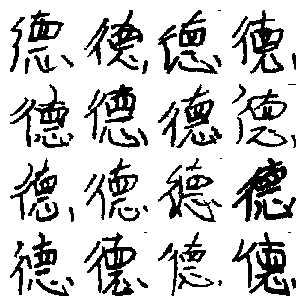 德德德德
德德德德
德德德德
德德德德